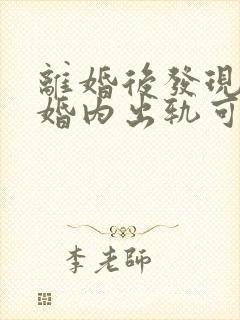 離婚後發現
婚内出軌可
李老師